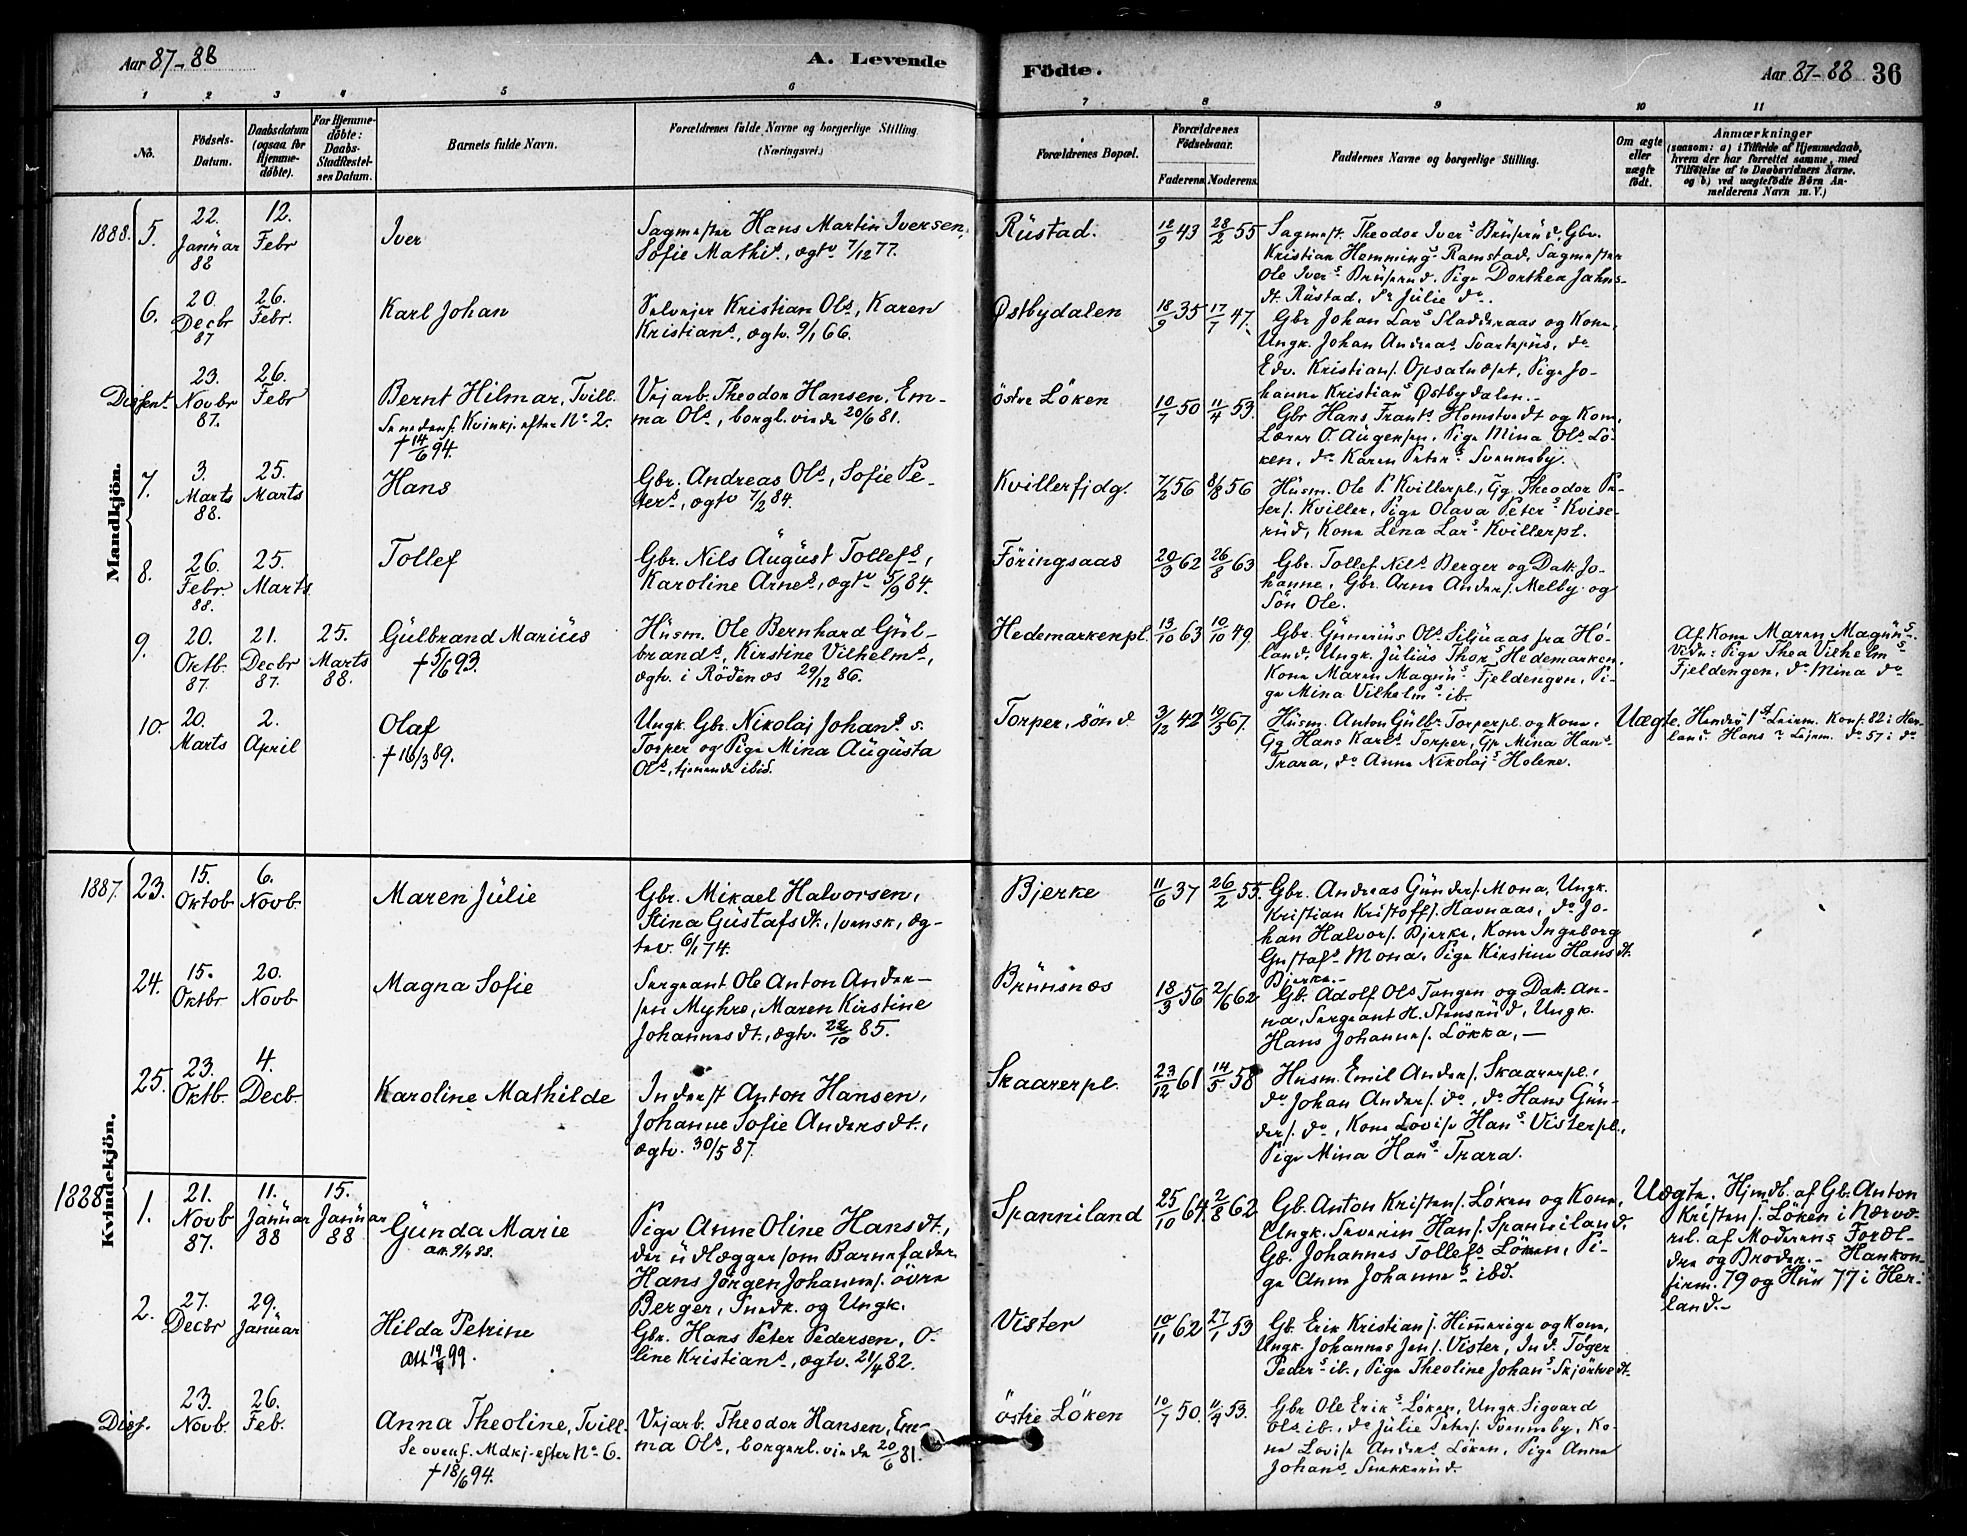 Aar 87-88
A. Levende
Födte.
Aar 87-88 36
1 2 3 4 5 6 7 8 9 10 11
No.
Födsels-
Datum.
Daabsdatum
(ogsaa for
Hjemme-
döbte).
For Hjemme-
döbte:
Daabs-
Stadfæstel-
ses Datum.
Barnets fulde Navn.
Forældrenes fulde Navne og borgerlige Stilling.
(Næringsvei.)
Forældrenes Bopæl.
Forældrenes
Födselsaar.
Faderens Moderens
Faddernes Navne og borgerlige Stilling.
Om ægte
eller
uægte
födt.
Anmærkninger
(saasom: a) i Tilfælde af Hjemmedaab,
hvem der har forrettet samme, med
Tilföielse af to Daabsvidners Navne.
og b) ved uægtefödte Börn An-
melderens Navn m. V.)
Mandkjön.
1888. 5.
22.
Januar
88
12.
Febr
Iver
Sagmester Hans Martin Iversen,
Sofie Mathis., ægtv 7/12 77.
Rüstad.
12/9 43
28/2 55
Sagmest. Theodor Ivers Brüserüd, Gbr.
Kristian Hemmings Ramstad, Sagmester
Ole Ivers Brüserud, Pige Dorthea Jahns-
dt. Rüstad, do Julie do.
6.
20.
Decbr
87
26.
Febr.
Karl Johan
Selvejer Kristian Ols, Karen
Kristians, ægtv. 9/1 66.
Østbydalen
18/9 35
17/7 47.
Gbr Johan Lars Sladderaas og Kone,
Ungk. Johan Andreas Svartepus, do
Edv. Kristians. Opsalnæst, Pige Jo-
hanne Kristians Østbydalen.
Dissent.
23.
Novbr
87.
26.
Febr
Bernt Hilmar, Tvill.
Se nedenf. Kvinkj. efter No 2.
† 14/6 94.
Vejarb. Theodor Hansen, Em-
ma Ols, borgl. viede 20/6 81.
östre Löken
10/7 50
11/4 53.
Gbr Hans Frants Homstvedt og Kone,
Lærer O. Augensen, Pige Mina Ols Lö-
ken, do Karen Peters Svenneby.
7.
3.
Marts
88.
25.
Marts
Hans
Gbr. Andreas Ols, Sofie Pe-
ters, ægtv 7/2 84.
Kvillerfjdg.
7/2 56
8/8 56
Husm. Ole P. Kvillerpl., Gg. Theodor Pe-
ters. Kviller, Pige Olava Peters Kvise-
rüd, Kone Lena Lars Kvillerpl.
8.
26.
Febr.
88.
25.
Marts
Tollef
Gbr. Nils August Tollefs,
Karoline Arnes, ægtv 5/9 84.
Föringsaas
20/3 62
26/8 63
Gbr. Tollef Nils Berger og Datt. Jo-
hanne, Gbr. Arne Anders. Melby og
Sön Ole.
9.
20.
Oktb.
87.
21.
Decbr
87.
25.
Marts
88.
Gülbrand Marius
† 5/6 93.
Husm. Ole Bernhard Gul-
brands, Kirstine Vilhelms,
ægtv. i Rödenæs 29/12 86.
Hedemarkenpl.
13/10 63
10/10 49.
Gbr. Günerius Ols Siljuaas fra Hö-
land, Ungk. Julius Thors Hedemarken,
Kone Maren Magnus Fjeldengen, Pi-
ge Mina Vilhelms ib.
Af Kone Maren Magnus
Vidn: Pige Thea Vilhelms
Fjeldengen, do Mina do
10.
20.
Marts
2.
April
Olaf
† 16/3 89.
Ungk. Gbr. Nikolaj Johans. s.
Torper og Pige Mina Augusta
Ols, tjenende ibid.
Torper, sönd.
3/12 42
19/5 67.
Husm. Anton Gulbr. Torperpl. og Kone,
Gg Hans Karls Torper, Gp Mina Hans
Trara, do Anna Nikolajs Holene.
Uægte.
Hendes 1ste Leierm. Konf. 82 i Her-
land. Hans Lejerm. do 57 i do
Kvindekjön.
1887. 23.
15.
Oktob
6.
Novb.
Maren Julie
Gbr. Mikael Halvorsen,
Stina Gustafsdt., svensk, æg-
tev. 6/1 74.
Bjerke
11/6 37
26/2 55.
Gbr. Andreas Günders. Mona, Ungk.
Kristian Kristoffs. Havnaas, do Jo-
han Halvors. Bjerke, Kone Ingeborg
Gustafs Mona, Pige Kirstine Hansdt.
Bjerke.
24.
15.
Oktbr
20.
Novb
Magna Sofie
Sergeant Ole Anton Ander-
sen Myhre, Maren Kirstine
Johannesdt., ægtv. 22/10 85.
Brünsnæs
18/3 56
2/6 62
Gb. Adolf Ols Tangen og Datt. An-
na, Sergeant H. Stensrüd, Ungk.
Hans Johannes. Lökka,
25.
23.
Oktb.
4.
Decb.
Karoline Mathilde
Inderst Anton Hansen,
Johanne Sofie Andersdt.,
ægtv. 30/5 87.
Skaarerpl.
23/12 61
14/5 58
Husm. Emil Anders. Skaarerpl.,
do Johan Anders. do, do Hans Gün-
ders. do, Kone Lovise Hans Visterpl.,
Pige Mina Hans Trara.
1888 1.
21.
Novb
87.
11.
Januar
88
15.
Januar
88
Günda Marie
att. 9/7 88.
Pige Anne Oline Hansdt.,
der udlægger som Barnefader
Hans Jörgen Johannes. övre
Berger, og Ungk.
Spanniland
25/10 64
2/8 62
Gb. Anton Kristens. Löken og Kone,
Ungk. Severin Hans. Spanniland,
Gb. Johannes Tollefs Löken, Pi-
ge Anne Johannes ibd.
Uægte.
Hjmdb. af Gb. Anton
Kristens. Löken i Nærvæ-
rel. af Moderens Foræl-
dre og Broder. Han kon-
firm. 79 og Hun 77 i Her-
land.
2.
27.
Decbr
29.
Januar
Hilda Petrine
Att 19/4 99.
Gbr. Hans Peter Pedersen, O-
line Kristians, ægtv. 21/4 82.
Vister
10/11 62
27/1 53
Gb. Erik Kristians. Himmerige og Kone,
Ungk. Johannes Jens. Vister, Ind. Töger
Peders ib., Pige Theoline Johans Skjörtvedt.
Diss.
23.
Novb.
26.
Feb.
Anna Theoline, Tvill.
Se ovenf. Mdkj. efter No 6.
† 18/6 94.
Vejarb. Theodor Hansen, Em-
ma Ols, borgerl. viede 20/6 81.
östre Löken
10/7 50.
11/4 53.
Gbr Ole Eriks Löken, Ungk. Sigvard
Ols ib., do Julie Peters. Svenneby, Ko-
ne Lovise Anders Löken, Pige Anne
Johans Snekkerüd.